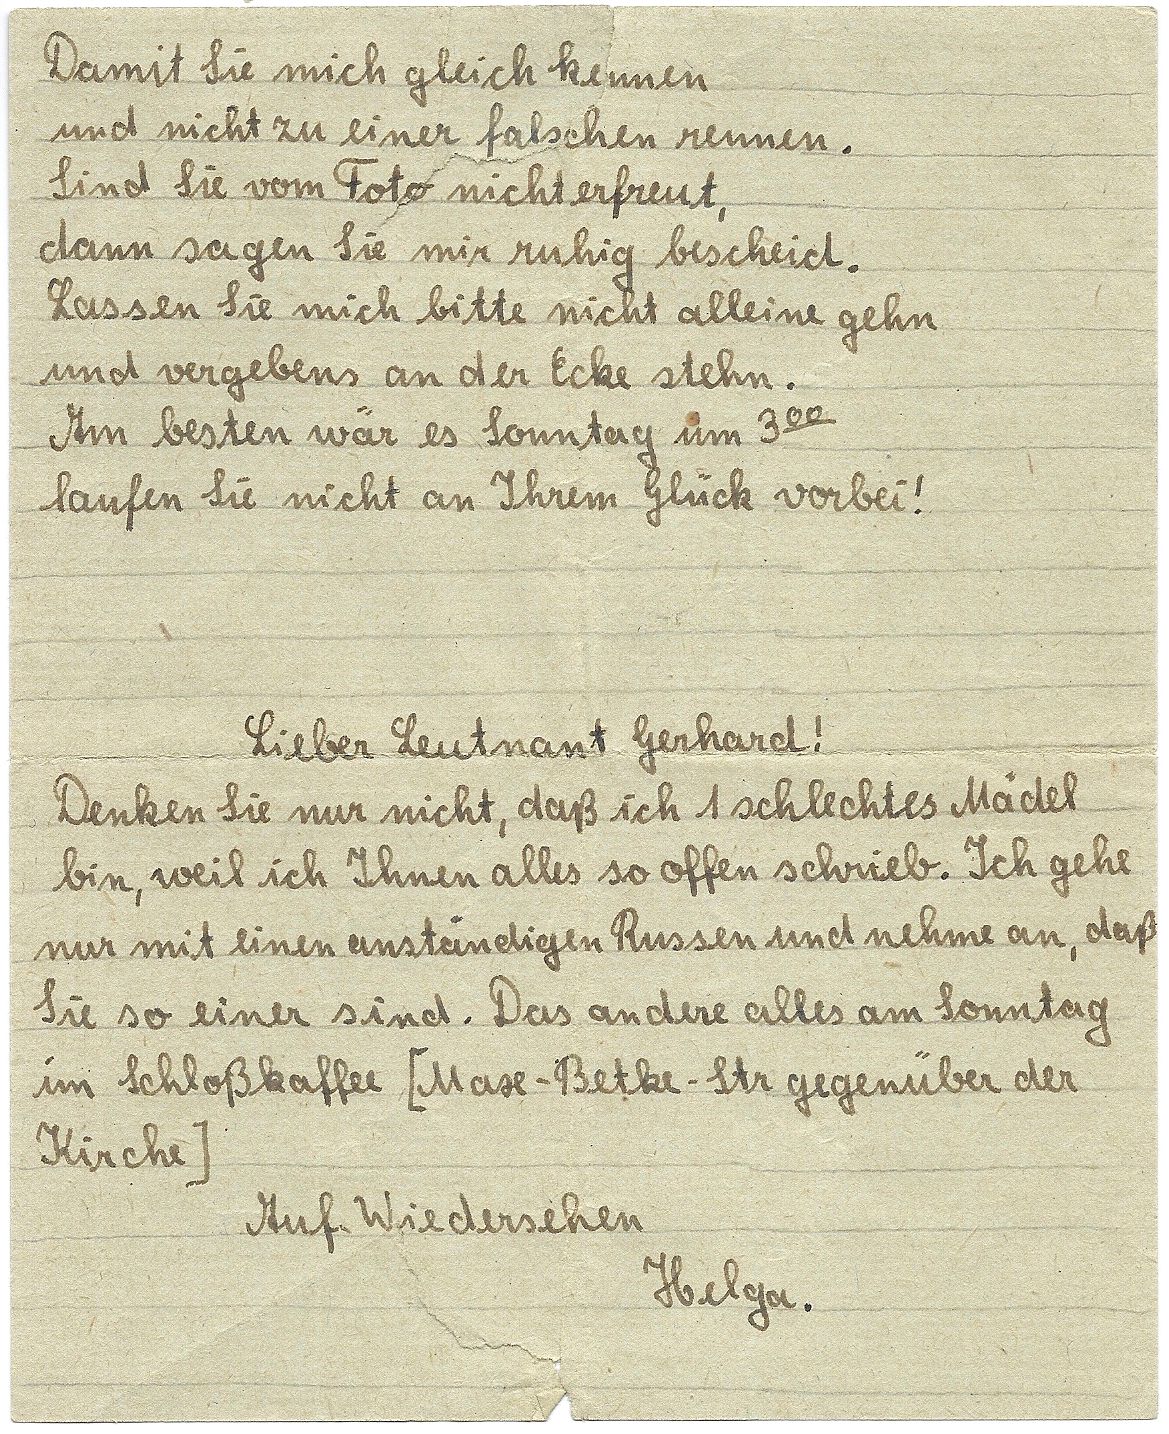 Damit Sie mich gleich kennen
und nicht zu einer falschen rennen.
Sind Sie vom Foto nicht erfreut,
dann sagen Sie mir ruhig bescheid.
Lassen Sie mich bitte nicht alleine gehn
und vergebens an der Ecke stehn.
Am besten wär es Sonntag um 3⁰⁰
laufen Sie nicht an Ihrem Glück vorbei!
Lieber Leutnant Gerhard!
Denken Sie nur nicht, daß ich 1 schlechtes Mädel
bin, weil ich Ihnen alles so offen schrieb. Ich gehe
nur mit einen anständigen Russen und nehme an, daß
Sie so einer sind. Das andere alles am Sonntag
im Schloßkaffee [Max-Betke-Str gegenüber der
Kirche]
Auf Wiedersehen
Helga.